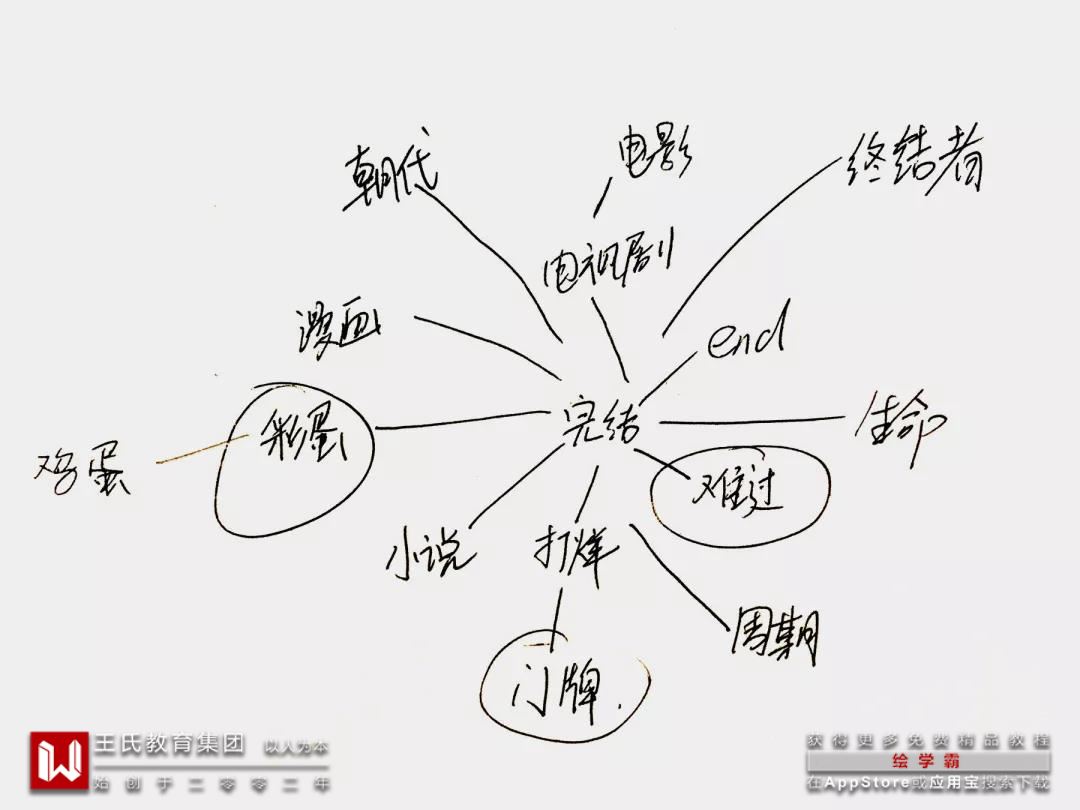 朝代
电影
终结者
电视剧
漫画
end
彩蛋
完结
生命
鸡蛋
难过
小说
打烊
周期
门牌.
王氏教育集团 以人为本
始创于二零零二年
获得更多免费精品教程
绘学霸
在AppStore或应用宝搜索下载